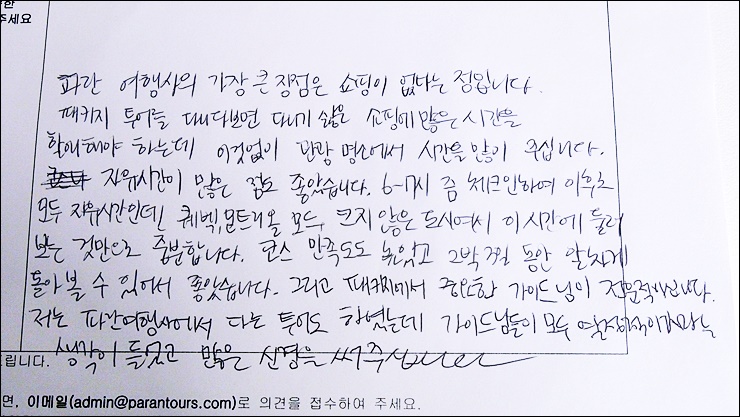 한
주세요
파란 여행사의 가장 큰 장점은 쇼핑이 없다는 점입니다.
패키지 투어를 다니다보면 다니기 싫은 쇼핑에 많은 시간을
할애해야 하는데 이것없이 관광 명소에서 시간을 많이 주십니다.
자유시간이 많은 점도 좋았습니다. 6-7시 쯤 체크인하여 이후로
모두 자유시간인데, 퀘벡, 몬트리올 모두, 크지 않은 도시여서 이 시간에 둘러
보는 것만으로 충분합니다. 코스 만족도도 높았고 2박 3일 동안 알차게
돌아 볼 수 있어서 좋았습니다. 그리고 패키지에서 중요한 가이드님이 전문적이십니다.
저는 파란여행사에서 다른 투어도 하였는데 가이드님들이 모두 열정적이라는
드립니다. 생각이 들었고 많은 신경을 써주십니다
면, 이메일(admin@parantours.com)로 의견을 접수하여 주세요.